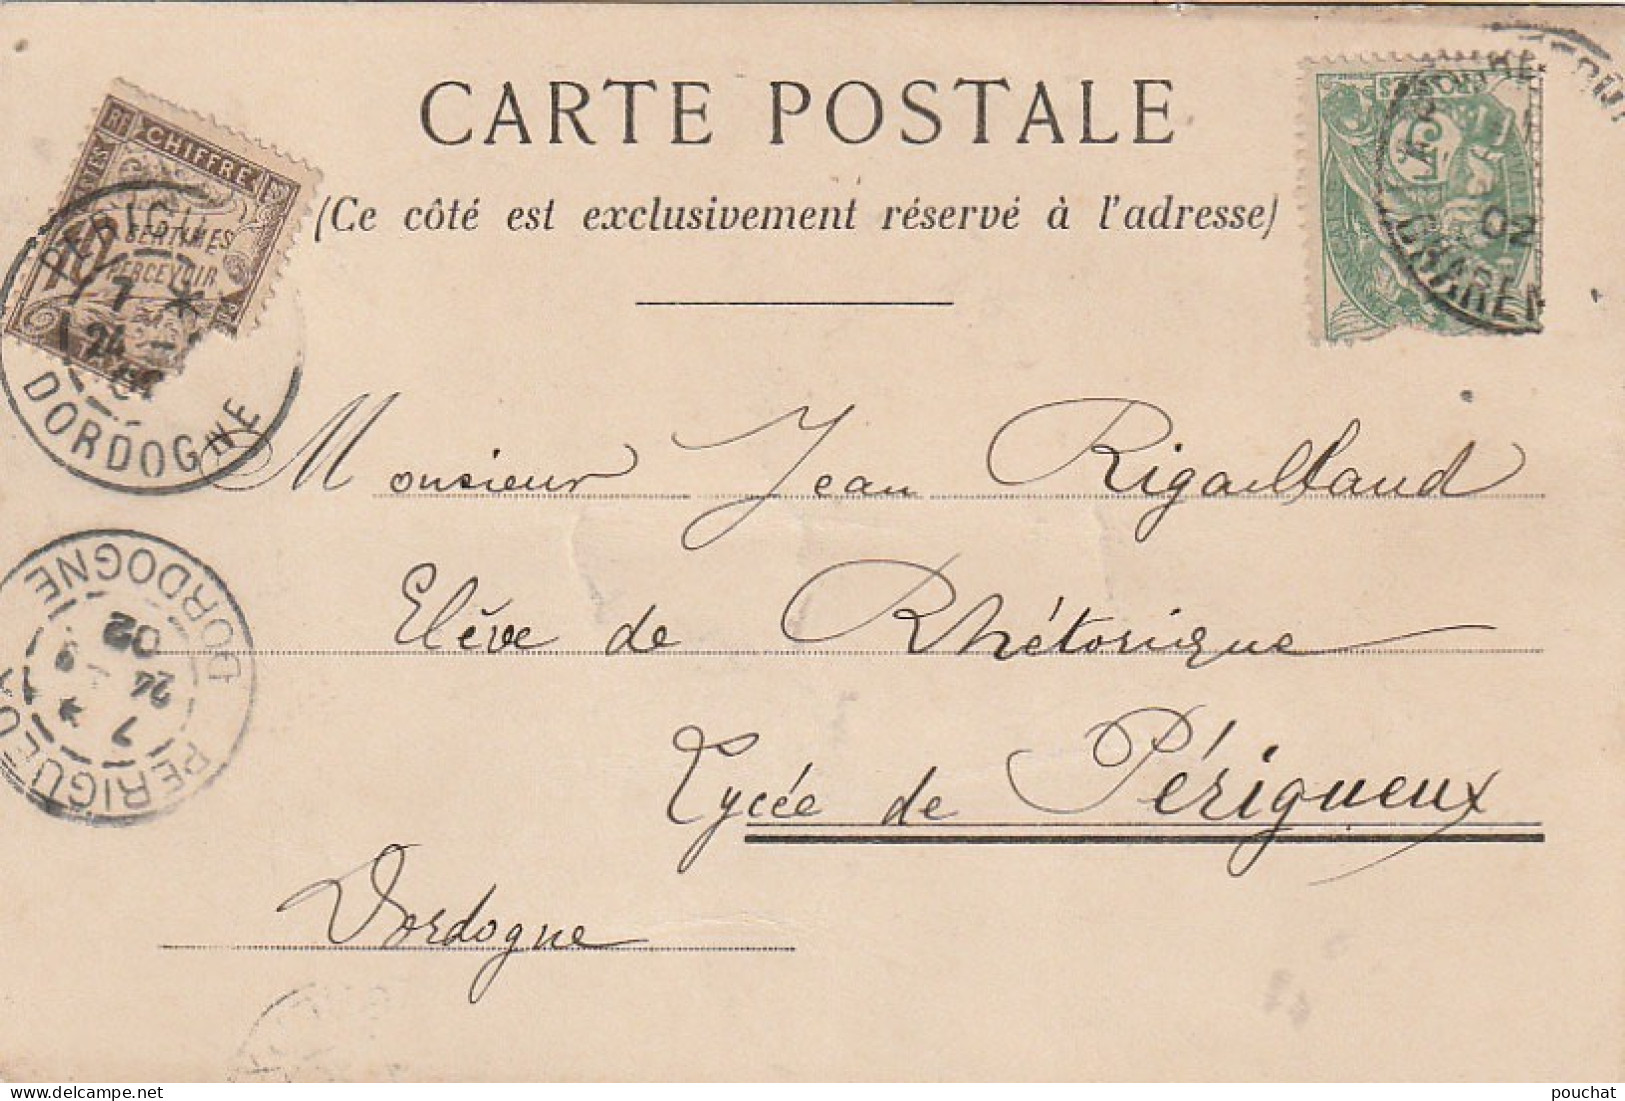 CARTE POSTALE
(Ce côté est exclusivement réservé à l'adresse)
RF CHIFFRE
CENTIMES
PERCEVOIR
PERIGU
7
24
DORDOGNE
5
02
CHAREN
Monsieur Jean Rigaillaud
Elève de Rhétorique
Lycée de Périgueux
Dordogne
PERIGUEUX
7
24
02
DORDOGNE
pouchat